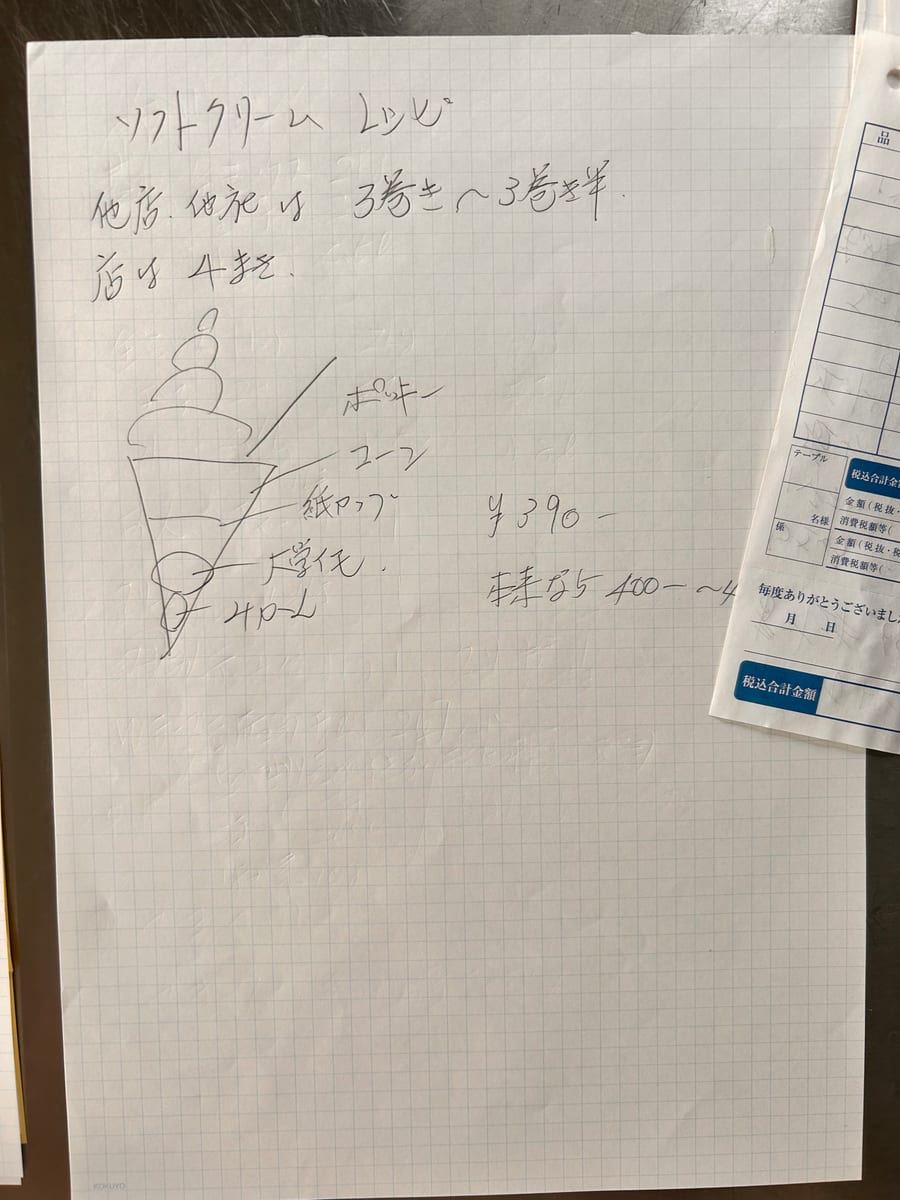 ソフトクリーム レシピ
他店、他社は 3巻き〜3巻き半.
店は 4まき.
ポッキー
コーン
紙カップ
¥390-
大学イモ.
本来なら 400-〜4
4ロール
品
テーブル
名様
係
税込合計金
金額(税抜・
消費税額等(
金額(税抜・税
消費税額等(
毎度ありがとうございました
月 日
税込合計金額
KOKUYO